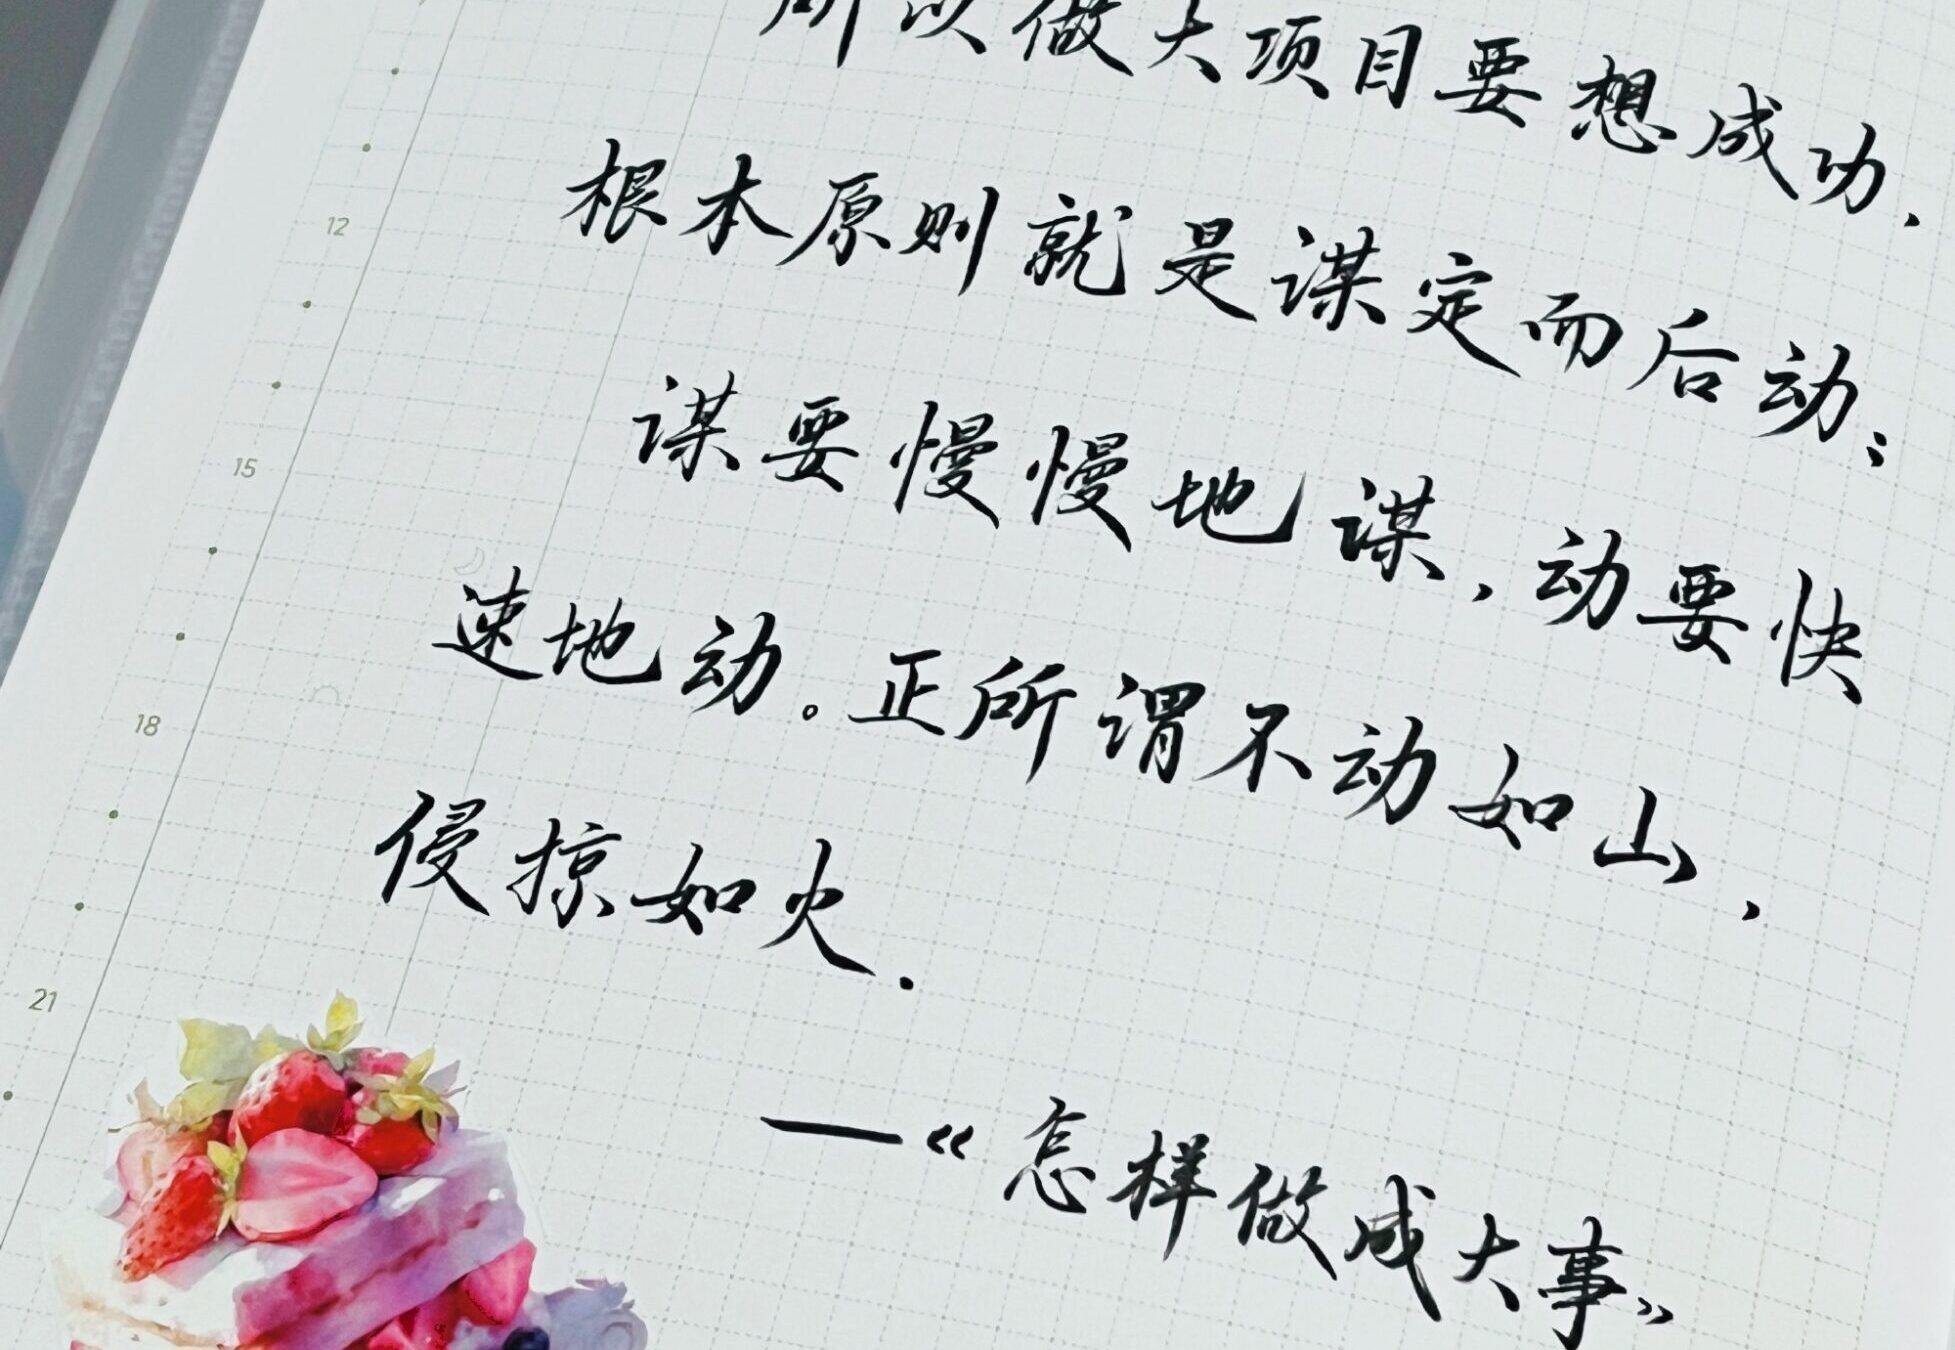 所以做大项目要想成功,
根本原则就是谋定而后动;
谋要慢慢地谋,动要快
速地动。正所谓不动如山,
侵掠如火.
—《怎样做成大事》
12
15
18
21